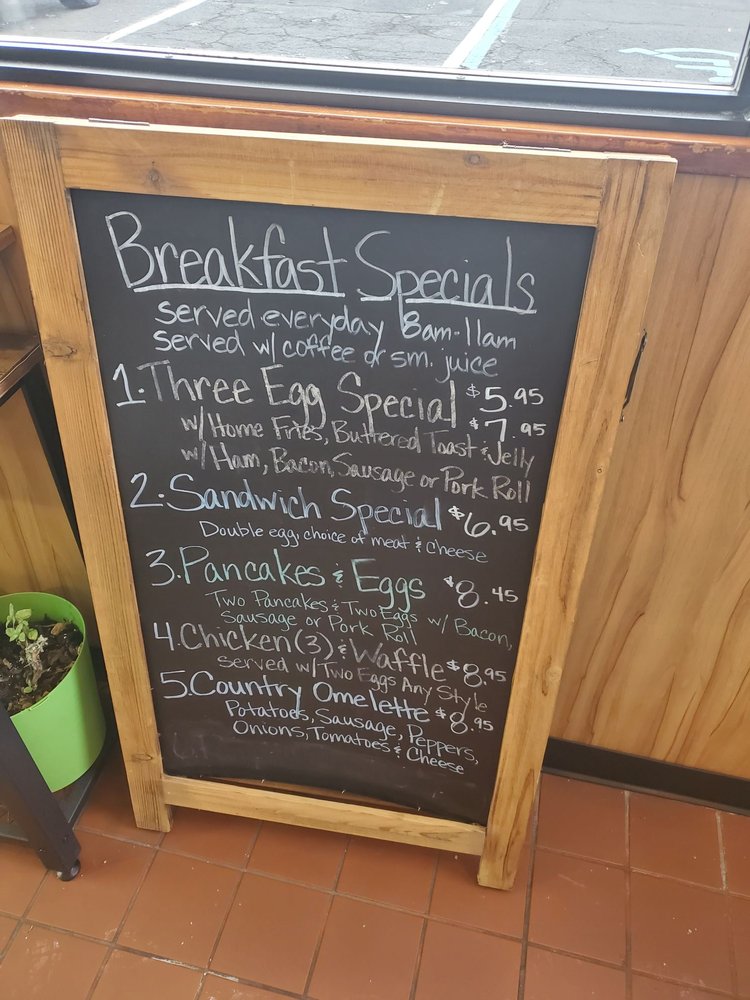 Breakfast Specials
served everyday 8am-11am
served w/ coffee or sm. juice
1. Three Egg Special $5.95
w/Home Fries, Buttered Toast & Jelly $7.95
w/Ham, Bacon, Sausage or Pork Roll
2. Sandwich Special $6.95
Double egg, choice of meat & cheese
3. Pancakes & Eggs $8.45
Two Pancakes & Two Eggs w/ Bacon,
Sausage or Pork Roll
4. Chicken (3) & Waffle $8.95
served w/ Two Eggs Any Style
5. Country Omelette $8.95
Potatoes, Sausage, Peppers,
Onions, Tomatoes & Cheese